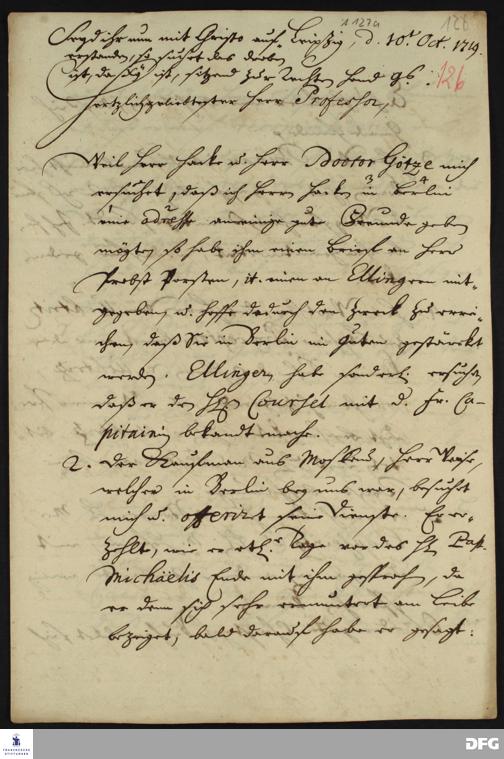 1 127a
126
Seyd ihr nun mit Christo auf- Leipzig, d. 10t Oct. 1719.
erstanden, so suchet was droben
ist, da Xs ist, sitzend zur rechten Hand gs. 126
Hertzlichgeliebtester Herr Professor,
Weil Herr Hacke u. Herr Doctor Götze mich
ersuchet, daß ich Herrn Hacken 3 in 4 Berlin
1 eine 2 adresse an einige gute Freunde geben
mögte, so habe ihm einen Brieff an Herr
Probst Porsten, it. einen an Ellingern mit-
gegeben u. hoffe dadurch den Zweck zu errei-
chen, daß Sie in Berlin im Guten gestärckt
werden. Ellingern habe sonderl. ersucht
daß er den HEn Courset mit d. Fr. Ca-
pitainin bekandt mache.
2. Der Kaufman aus Moskau, Herr Weise,
welcher in Berlin bey uns war, besucht
mich u. offerirt seine Dienste. Er er-
zehlte, wie er etl. Tage vor des H. Past.
Michaelis Ende mit ihm gesprochen, da
er dem sich sehr ermuntert am Leibe
bezeiget, bald darauf habe er gesagt:
FRANCKESCHE
STIFTUNGEN
DFG